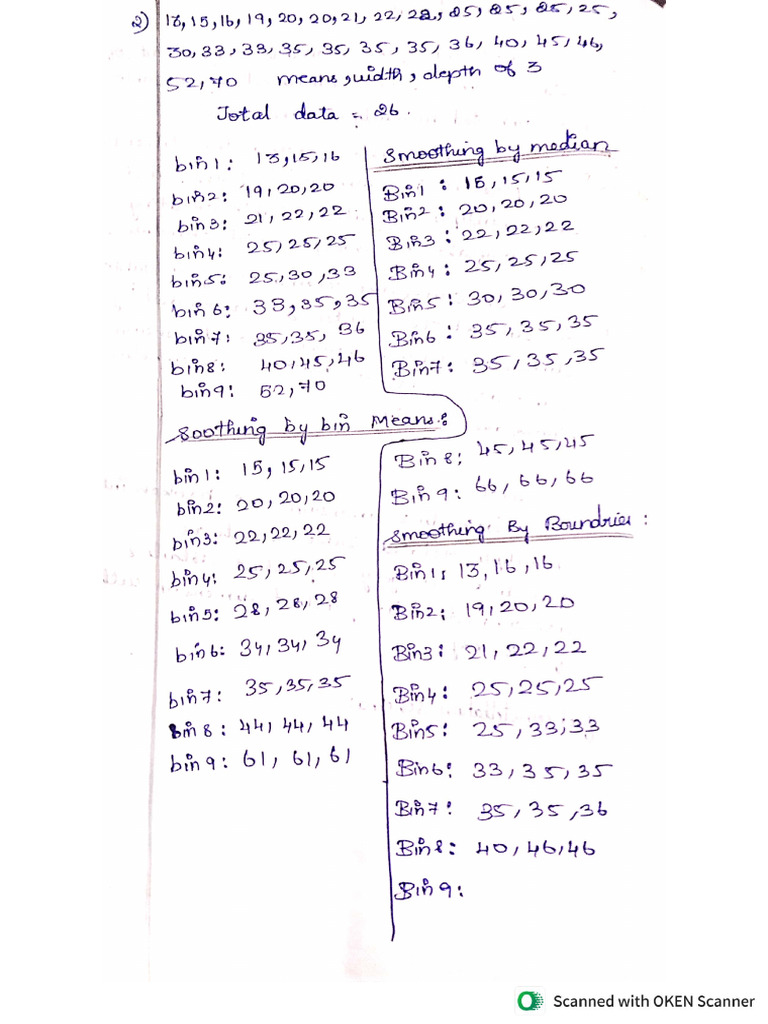 2) 13, 15, 16, 19, 20, 20, 21, 22, 22, 25, 25, 25, 25,
30, 33, 33, 35, 35, 35, 35, 36, 40, 45, 46,
52, 70 means, width, depth of 3
Total data = 26.
bin1: 13, 15, 16
bin2: 19, 20, 20
bin3: 21, 22, 22
bin4: 25, 25, 25
bin5: 25, 30, 33
bin6: 33, 35, 35
bin7: 35, 35, 36
bin8: 40, 45, 46
bin9: 52, 70
Soothing by bin Means:
bin1: 15, 15, 15
bin2: 20, 20, 20
bin3: 22, 22, 22
bin4: 25, 25, 25
bin5: 28, 28, 28
bin6: 34, 34, 34
bin7: 35, 35, 35
bin8: 44, 44, 44
bin9: 61, 61, 61
Smoothing by median
Bin1: 15, 15, 15
Bin2: 20, 20, 20
Bin3: 22, 22, 22
Bin4: 25, 25, 25
Bin5: 30, 30, 30
Bin6: 35, 35, 35
Bin7: 35, 35, 35
Bin8: 45, 45, 45
Bin9: 66, 66, 66
Smoothing By Boundries:
Bin1: 13, 16, 16
Bin2: 19, 20, 20
Bin3: 21, 22, 22
Bin4: 25, 25, 25
Bin5: 25, 33, 33
Bin6: 33, 35, 35
Bin7: 35, 35, 36
Bin8: 40, 46, 46
Bin9:
Scanned with OKEN Scanner